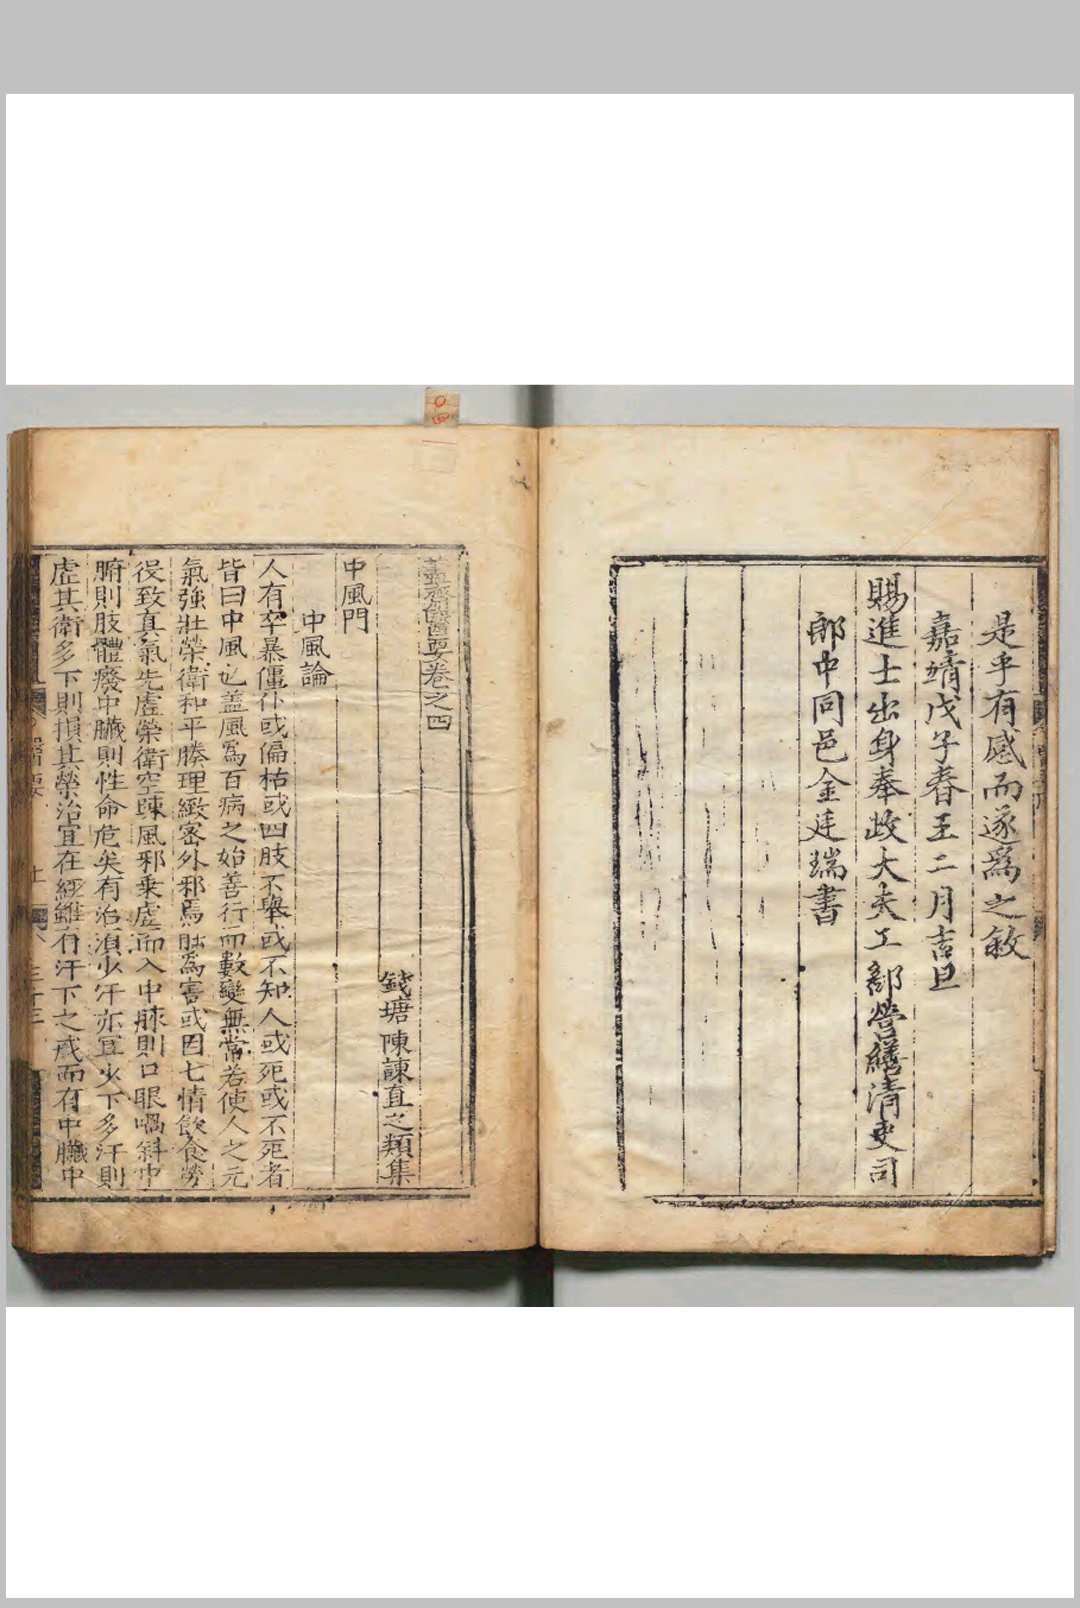 是乎有感而遂爲之敘
嘉靖戊子春王二月吉旦
賜進士出身奉政大夫工部營繕清吏司
郎中同邑金廷瑞書
藎齋醫要卷之四
錢塘陳諫直之類集
中風門
中風論
人有卒暴僵仆或偏枯或四肢不舉或不知人或死或不死者
皆曰中風也蓋風爲百病之始善行而數變無常若使人之元
氣強壯榮衛和平腠理緻密外邪焉能爲害或因七情飲食勞
役致真氣先虛榮衛空踈風邪乘虛而入中脉則口眼喎斜中
腑則肢體癈中臟則性命危矣有治湏少汗亦宜少下多汗則
虛其衛多下則損其榮治宜在經雖有汗下之戒而有中臟中
醫要